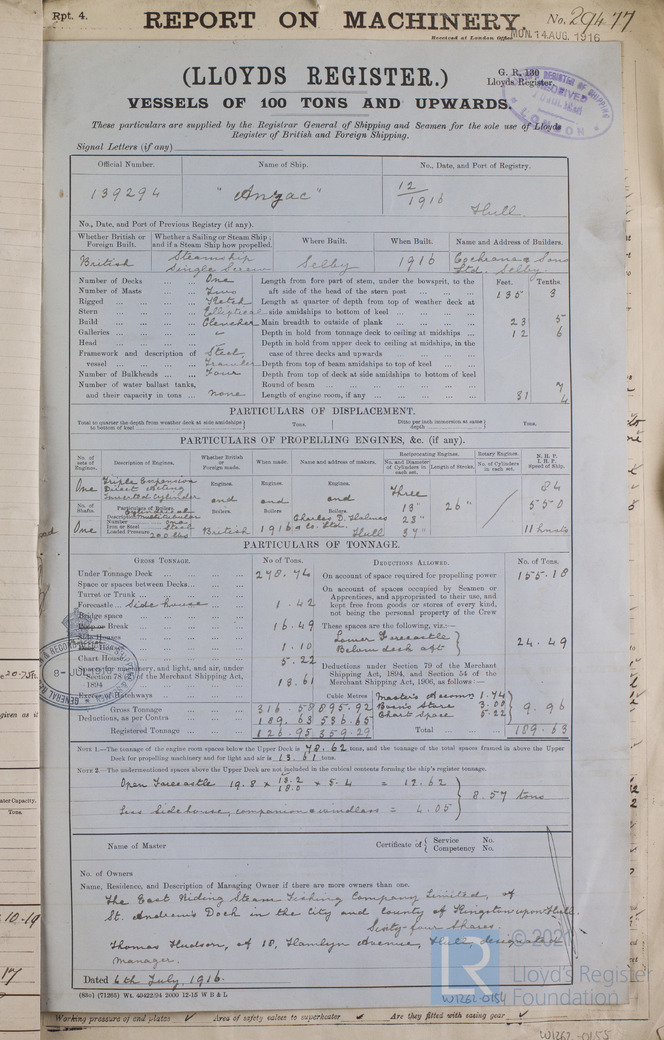 Rpt. 4.
REPORT ON MACHINERY.
No. 29477
Received at London Office MON. 14 AUG. 1916
(LLOYDS REGISTER.)
G. R. 130
Lloyds Register.
VESSELS OF 100 TONS AND UPWARDS.
LONDON
These particulars are supplied by the Registrar General of Shipping and Seamen for the sole use of Lloyds
Register of British and Foreign Shipping.
Signal Letters (if any)
Official Number. Name of Ship. No., Date, and Port of Registry.
139294 "Anzac" 12/1916 Hull.
No., Date, and Port of Previous Registry (if any).
Whether British or Foreign Built. Whether a Sailing or Steam Ship; and if a Steam Ship how propelled. Where Built. When Built. Name and Address of Builders.
British Steamship Single Screw Selby 1916 Cochrane & Sons Ltd. Selby
Number of Decks ... ... One Length from fore part of stem, under the bowsprit, to the Feet. Tenths
Number of Masts ... ... Two aft side of the head of the stern post ... 135 3
Rigged ... ... ... Ketch Length at quarter of depth from top of weather deck at
Stern ... ... ... Elliptical side amidships to bottom of keel ...
Build ... ... ... Clencher Main breadth to outside of plank ... 23 5
Galleries ... ... ... Depth in hold from tonnage deck to ceiling at midships ... 12 6
Head ... ... ... Depth in hold from upper deck to ceiling at midships, in the
Framework and description of Steel case of three decks and upwards ...
vessel ... ... Trawler Depth from top of beam amidships to top of keel ...
Number of Bulkheads ... Four Depth from top of deck at side amidships to bottom of keel
Number of water ballast tanks, Round of beam ... 7
and their capacity in tons ... none Length of engine room, if any ... 31 4
PARTICULARS OF DISPLACEMENT.
Total to quarter the depth from weather deck at side amidships to bottom of keel Tons. Ditto per inch immersion at same depth Tons.
PARTICULARS OF PROPELLING ENGINES, &c. (if any).
No. of sets of Engines. Description of Engines. Whether British or Foreign made. When made. Name and address of makers. Reciprocating Engines. Rotary Engines. N. H. P. I. H. P. Speed of Ship.
No. and Diameter of Cylinders in each set. Length of Stroke. No. of Cylinders in each set.
One Triple Expansion Direct Acting Inverted Cylinder Engines. Engines. Engines. Three 84
and and and 13" 26" 550
No. of Shafts. Particulars of Boilers. Boilers Boilers Boilers 23"
Description Multitubular
Number one
Iron or Steel Steel
Loaded Pressure 200 lbs
One British 1916 Charles D. Holmes & Co. Ltd. Hull 37" 11 knots
PARTICULARS OF TONNAGE.
GROSS TONNAGE. No of Tons. DEDUCTIONS ALLOWED. No. of Tons.
Under Tonnage Deck ... 278.74 On account of space required for propelling power 155.18
Space or spaces between Decks...
Turret or Trunk ... On account of spaces occupied by Seamen or
Apprentices, and appropriated to their use, and
kept free from goods or stores of every kind,
not being the personal property of the Crew
Forecastle Side house 1.42
Bridge space
Poop or Break 16.49 These spaces are the following, viz.:—
Side Houses Lower Forecastle
1.10 Below deck aft 24.49
Chart House 5.22
Spaces for machinery, and light, and air, under
Section 78 (2) of the Merchant Shipping Act,
1894 ... 13.61
Deductions under Section 79 of the Merchant
Shipping Act, 1894, and Section 54 of the
Merchant Shipping Act, 1906, as follows:—
Excess of Hatchways
Cubic Metres
Master's Accom 1.74
Gross Tonnage 316.58 895.92 Bosn's Store 3.00 9.96
Deductions, as per Contra 189.63 536.65 Chart Space 5.22
Registered Tonnage 126.95 359.29 Total ... 189.63
NOTE 1.—The tonnage of the engine room spaces below the Upper Deck is 78.62 tons, and the tonnage of the total spaces framed in above the Upper
Deck for propelling machinery and for light and air is 13.61 tons.
NOTE 2.—The undermentioned spaces above the Upper Deck are not included in the cubical contents forming the ship's register tonnage.
Open Forecastle 19.8 × × 5.4 = 12.62
Less side house, companion & windlass = 4.05
8.57 tons
Name of Master Certificate of { Service No. Competency No.
No. of Owners
Name, Residence, and Description of Managing Owner if there are more owners than one.
The East Riding Steam Fishing Company Limited, of
St. Andrew's Dock in the City and County of Kingston upon Hull.
Sixty-four Shares.
Thomas Hudson, of 18, Hamlyn Avenue, Hull, designated
Manager.
Dated 6th July, 1916.
(83o) (71265) Wt. 40422/94 2000 12-15 W B & L
© 2021
LR
Lloyd's Register
Foundation
W1262-0154
Working pressure of end plates Area of safety valves to superheater Are they fitted with easing gear
W1262-0155